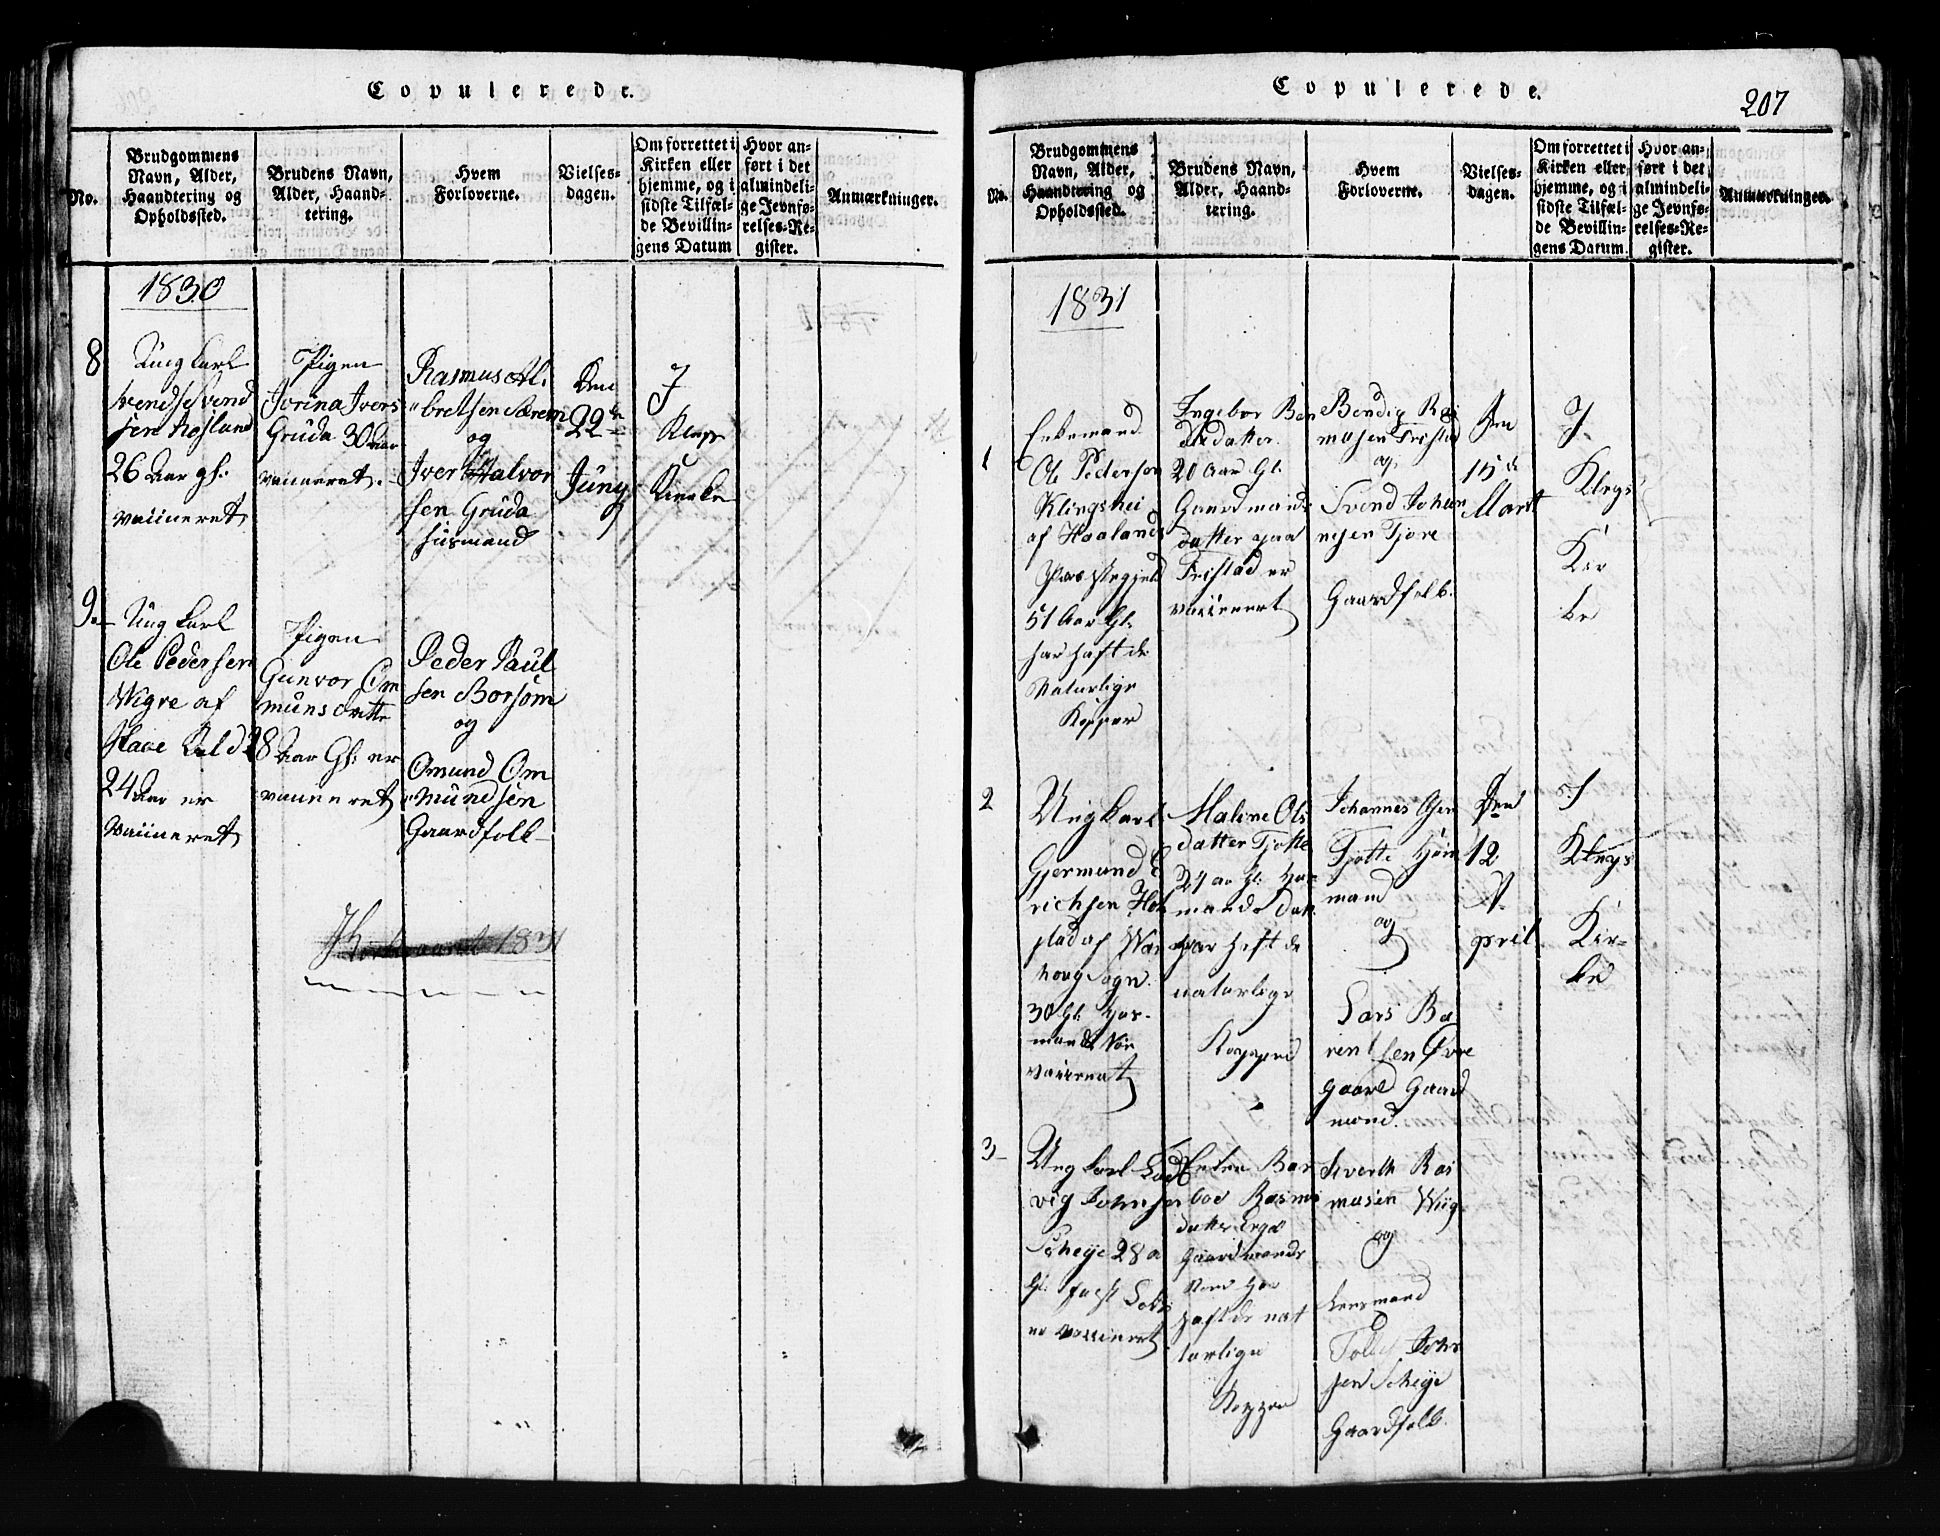 Copulerede.
No.
Brudgommens
Navn, Alder,
Haandtering og
Opholdssted.
Brudens Navn,
Alder, Haand-
tering.
Hvem
Forloverne.
Vielses-
dagen.
Om forrettet i
Kirken eller
hjemme, og i
sidste Tilfæl-
de Bevillin-
gens Datum
Hvor an-
ført i det
almindeli-
ge Jevnfø-
relses-Re-
gister.
Anmærkninger.
1830
8
Ung Karl
Svend Svend
sen
26 Aar gl:
vaccineret
Pigen
Jorina Ivers
Gruda 30 Aar
vaccineret.
Rasmus Al-
bretsen
og
Iver Halvor
sen Gruda
Huusmand
Den
22de
Juny
I
Klep
Kirke
9
Ung Karl
Ole Pedersen
Wigre af
24 Aar er
vaccineret
Pigen
Gunvor Om
munsdatte
28 Aar Gl: er
vaccineret
Peder Paul
sen Borsom
og
Omund Om
mundsen
Gaardfolk
1831
Copulerede.
207
No.
Brudgommens
Navn, Alder,
Haandtering og
Opholdssted.
Brudens Navn,
Alder, Haand-
tering.
Hvem
Forloverne.
Vielses-
dagen.
Om forrettet i
Kirken eller
hjemme, og i
sidste Tilfæl-
de Bevillin-
gens Datum.
Hvor an-
ført i det
almindeli-
ge Jevnfø-
relses-Re-
gister.
Anmærkninger.
1831
1
Enkemand
Ole Pederson
Klingshei
af Haaland
Præstegjeld
51 Aar Gl:
har haft de
Naturlige
Kopper
Ingebor Ben
datter
20 Aar Gl.
Gaardmands
datter paa
Fristad er
vaccinert
Bendig Ras
musen Fristad
og
Svend Johan
nesen Tjøre
Gaardfolk.
Den
15de
Mart
I
Kleps
Kir
ke
2
Ung Karl
Gjermund E
richsen
stad af Var
houg Sogn.
30 Gl: Huus-
mand
vaccinert
Maline Ols
datter Tjotte
Gl:
mands Datt
har haft de
naturlige
Kopper
Johannes Olsen
Tjotte Huus
mand
og
Lars Ba
rentsen Øvre
gaard Gaard
mand.
Den
12
A
pril
I
Kleps
Kir-
ke
3
Ung Karl Lod
vig Johnsen
Scheye 28 a
Gl:
er vaccineret
Enken Bar
boe Rasmus
datter
Gaardmands
haft de nat
turlige
Kopper
Siverth Ras
musen Wiig
og
Lensmand
John
sen Scheije
Gaardfolk.